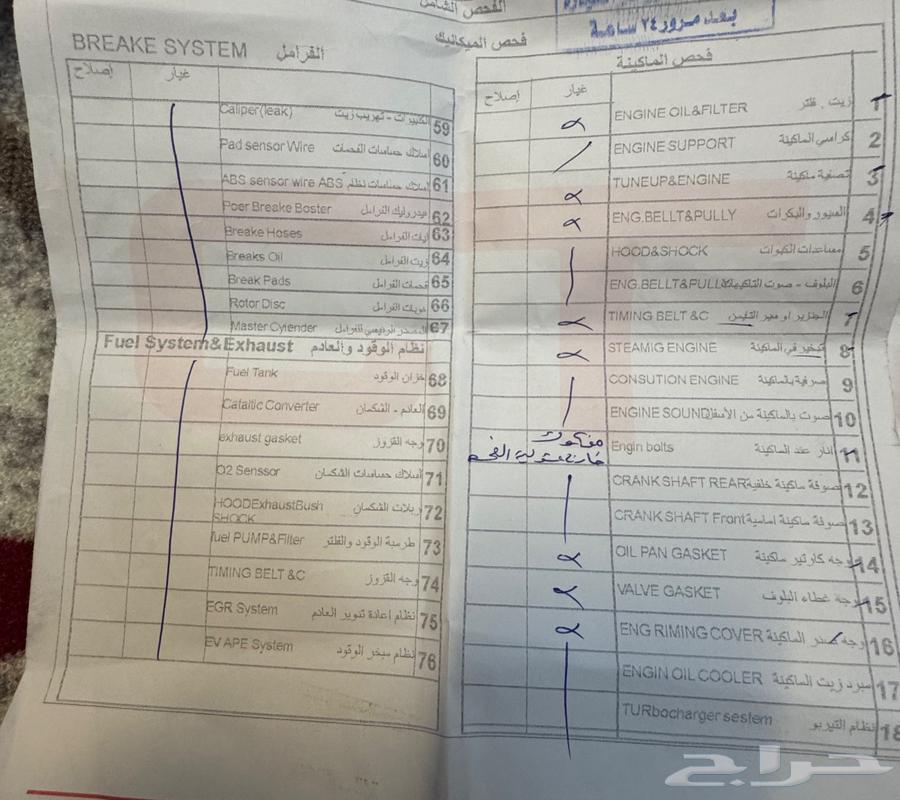 الفحص الشامل
بعد مرور ٢٤ ساعة
فحص الميكانيك
BREAKE SYSTEM الفرامل
غيار إصلاح
Caliper(leak) الكليبرات - تهريب زيت 59
Pad sensor Wire أسلاك حساسات القمصات 60
ABS sensor wire ABS أسلاك حساسات نظام 61
Poer Breake Boster هيدروليك الفرامل 62
Breake Hoses ليات الفرامل 63
Breaks Oil زيت الفرامل 64
Break Pads قمصات الفرامل 65
Rotor Disc هوبات الفرامل 66
Master Cylender الرئيسي للفرامل 67
Fuel System&Exhaust نظام الوقود والعادم
Fuel Tank خزان الوقود 68
Cataltic Converter العادم - الشكمان 69
exhaust gasket وجه القزوز 70
O2 Senssor أسلاك حساسات الشكمان 71
HOODExhaustBush ربلات الشكمان 72
SHOCK
fuel PUMP&Filter طرمبة الوقود والفلتر 73
TIMING BELT &C وجه القزوز 74
EGR System نظام اعادة تدوير العادم 75
EV APE System نظام مبخر الوقود 76
فحص الماكينة
غيار إصلاح
ENGINE OIL&FILTER زيت . فلتر 1
ENGINE SUPPORT كراسي الماكينة 2
TUNEUP&ENGINE تصفية ماكينة 3
ENG.BELLT&PULLY السيور والبكرات 4
HOOD&SHOCK مساعدات الكبوت 5
ENG.BELLT&PULLY البلوف - صوت التكيات 6
TIMING BELT &C الجنزير او سير التايمن 7
STEAMIG ENGINE تبخير في الماكينة 8
CONSUTION ENGINE صرفية بالماكينة 9
ENGINE SOUND صوت بالماكينة من الأسفل 10
Engin bolts اثار عند الماكينة 11
مفكوك
خارج مسئولية الفحص
CRANK SHAFT REAR صوفة ماكينة خلفية 12
CRANK SHAFT Front صوفة ماكينة امامية 13
OIL PAN GASKET وجه كارتير ماكينة 14
VALVE GASKET وجه غطاء البلوف 15
ENG RIMING COVER وجه صدر الماكينة 16
ENGIN OIL COOLER مبرد زيت الماكينة 17
TURbocharger sestem نظام التيربو 18
حراج